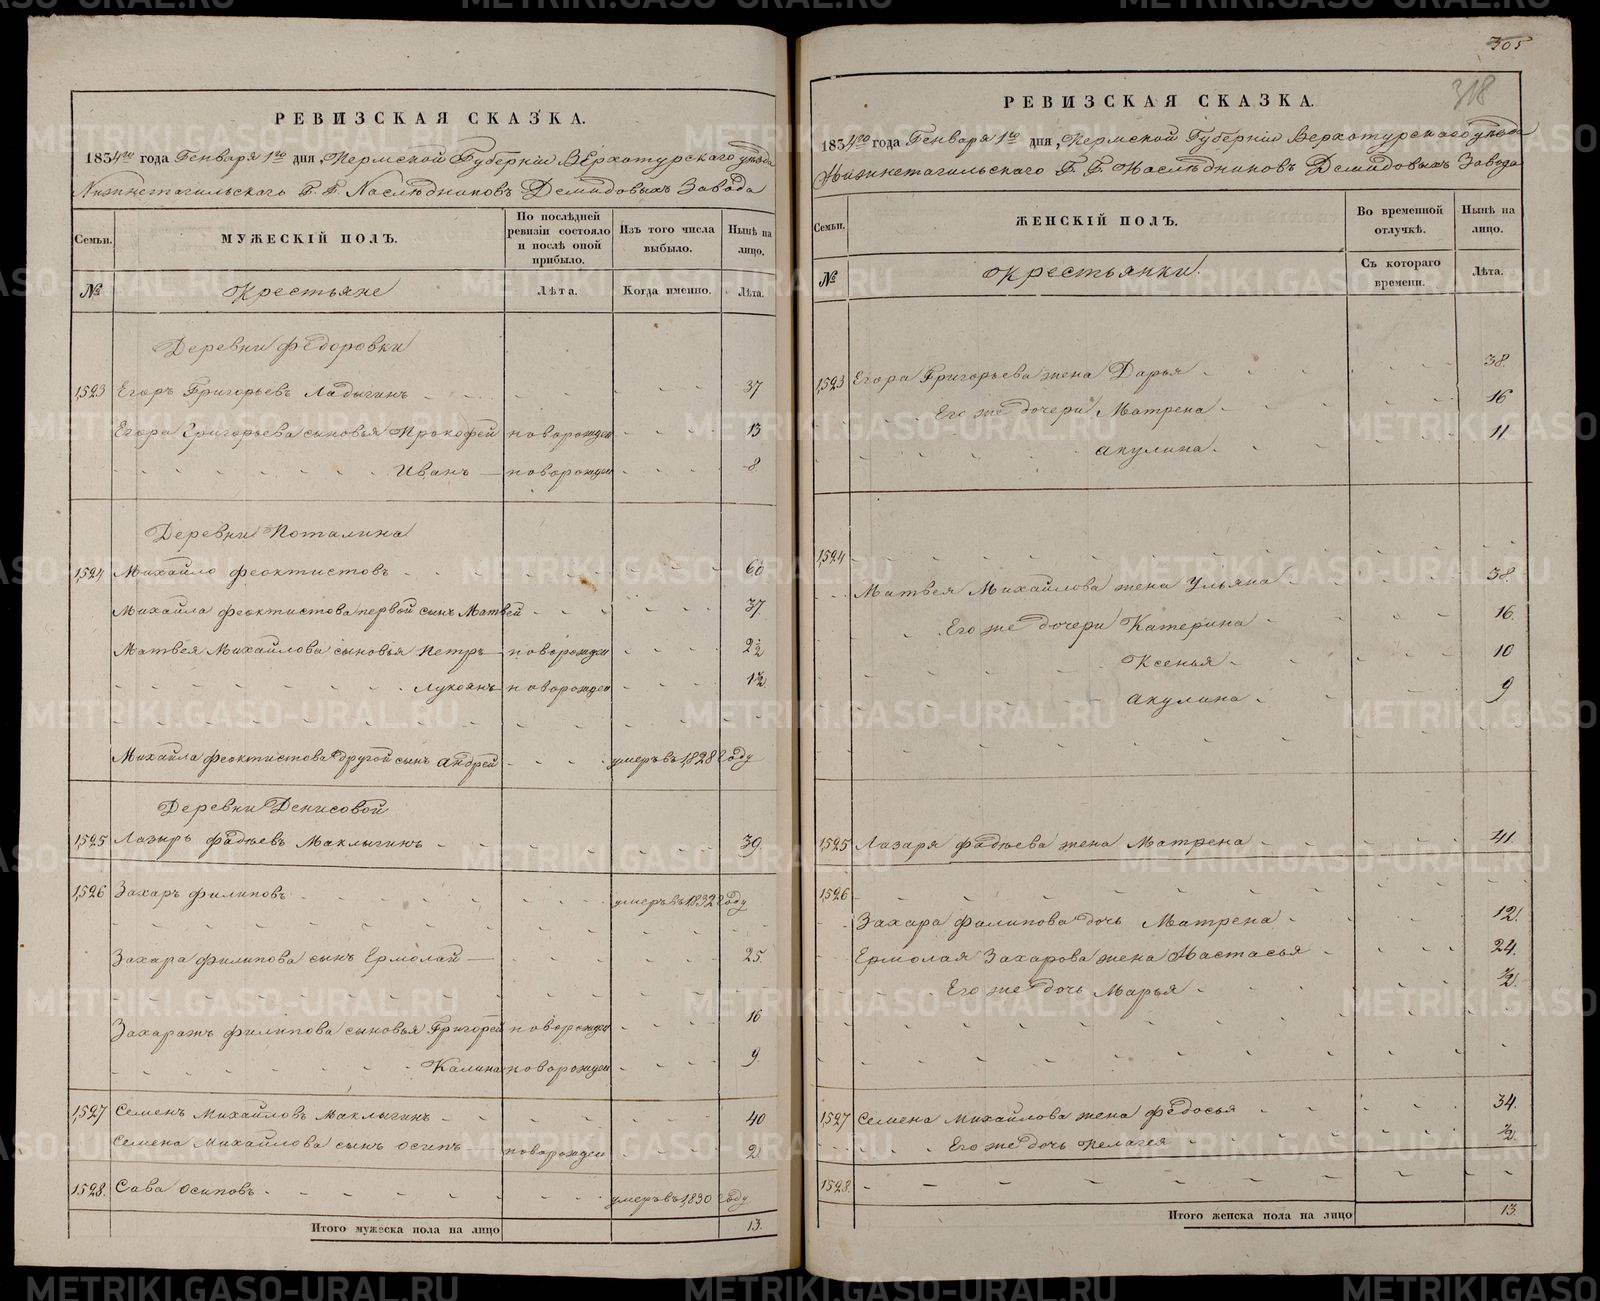 РЕВИЗСКАЯ СКАЗКА.
1834го года Генваря 1го дня, Пермской Губернiи Верхотурскаго уѣзда
Нижнетагильскаго Г. Г. Наслѣдниковъ Демидовыхъ Завода
Семьи. МУЖЕСКIЙ ПОЛЪ. По послѣдней ревизiи состояло и послѣ оной прибыло. Изъ того числа выбыло. Нынѣ на лицо.
№ Крестьяне Лѣта. Когда именно. Лѣта.
Деревни Федоровки
1,523 Егоръ Григорьевъ Ладыгинъ 37
Егора Григорьева сыновья Прокофей новорожден 13
Иванъ новорожден 8
Деревни Поталина
1,524 Михайло Феоктистовъ 60
Михайла Феоктистова первой сынъ Матвей 37
Матвея Михайлова сыновья Петръ новорожден 2½
Лукоянъ новорожден 1½
Михайла Феоктистова другой сынъ Андрей умеръ въ 1,828 году
Деревни Денисовой
1,525 Лазырь Фадѣевъ Маклыгинъ 39
1,526 Захаръ Филиповъ умеръ въ 1,832 году
Захара Филипова сынъ Ермолай 25
Захаражъ Филипова сыновья Григорей новорожден 16
Калина новорожден 9
1,527 Семенъ Михайловъ Маклыгинъ 40
Семена Михайлова сынъ Осипъ новорожден 2
1,528 Сава Осиповъ умеръ въ 1,830 году
Итого мужеска пола на лицо 13.
305
318
РЕВИЗСКАЯ СКАЗКА.
1834го года Генваря 1го дня, Пермской Губернiи Верхотурскаго уѣзда
Нижнетагильскаго Г. Г. Наслѣдниковъ Демидовыхъ Завода
Семьи. ЖЕНСКIЙ ПОЛЪ. Во временной отлучкѣ. Нынѣ на лицо.
№ Крестьянки Съ котораго времени. Лѣта.
1,523 Егора Григорьева жена Дарья 38.
Его же дочери Матрена 16
Акулина 11
1,524
Матвея Михайлова жена Ульяна 38.
Его же дочери Катерина 16.
Ксенья 10
Акулина 9
1,525 Лазаря Фадѣева жена Матрена 41.
1,526
Захара Филипова дочь Матрена 12.
Ермолая Захарова жена Настасья 24.
Его же дочь Марья ½.
1,527 Семена Михайлова жена Федосья 34.
Его же дочь Пелагея ½.
1,528.
Итого женска пола на лицо 13.
METRIKI.GASO-URAL.RU